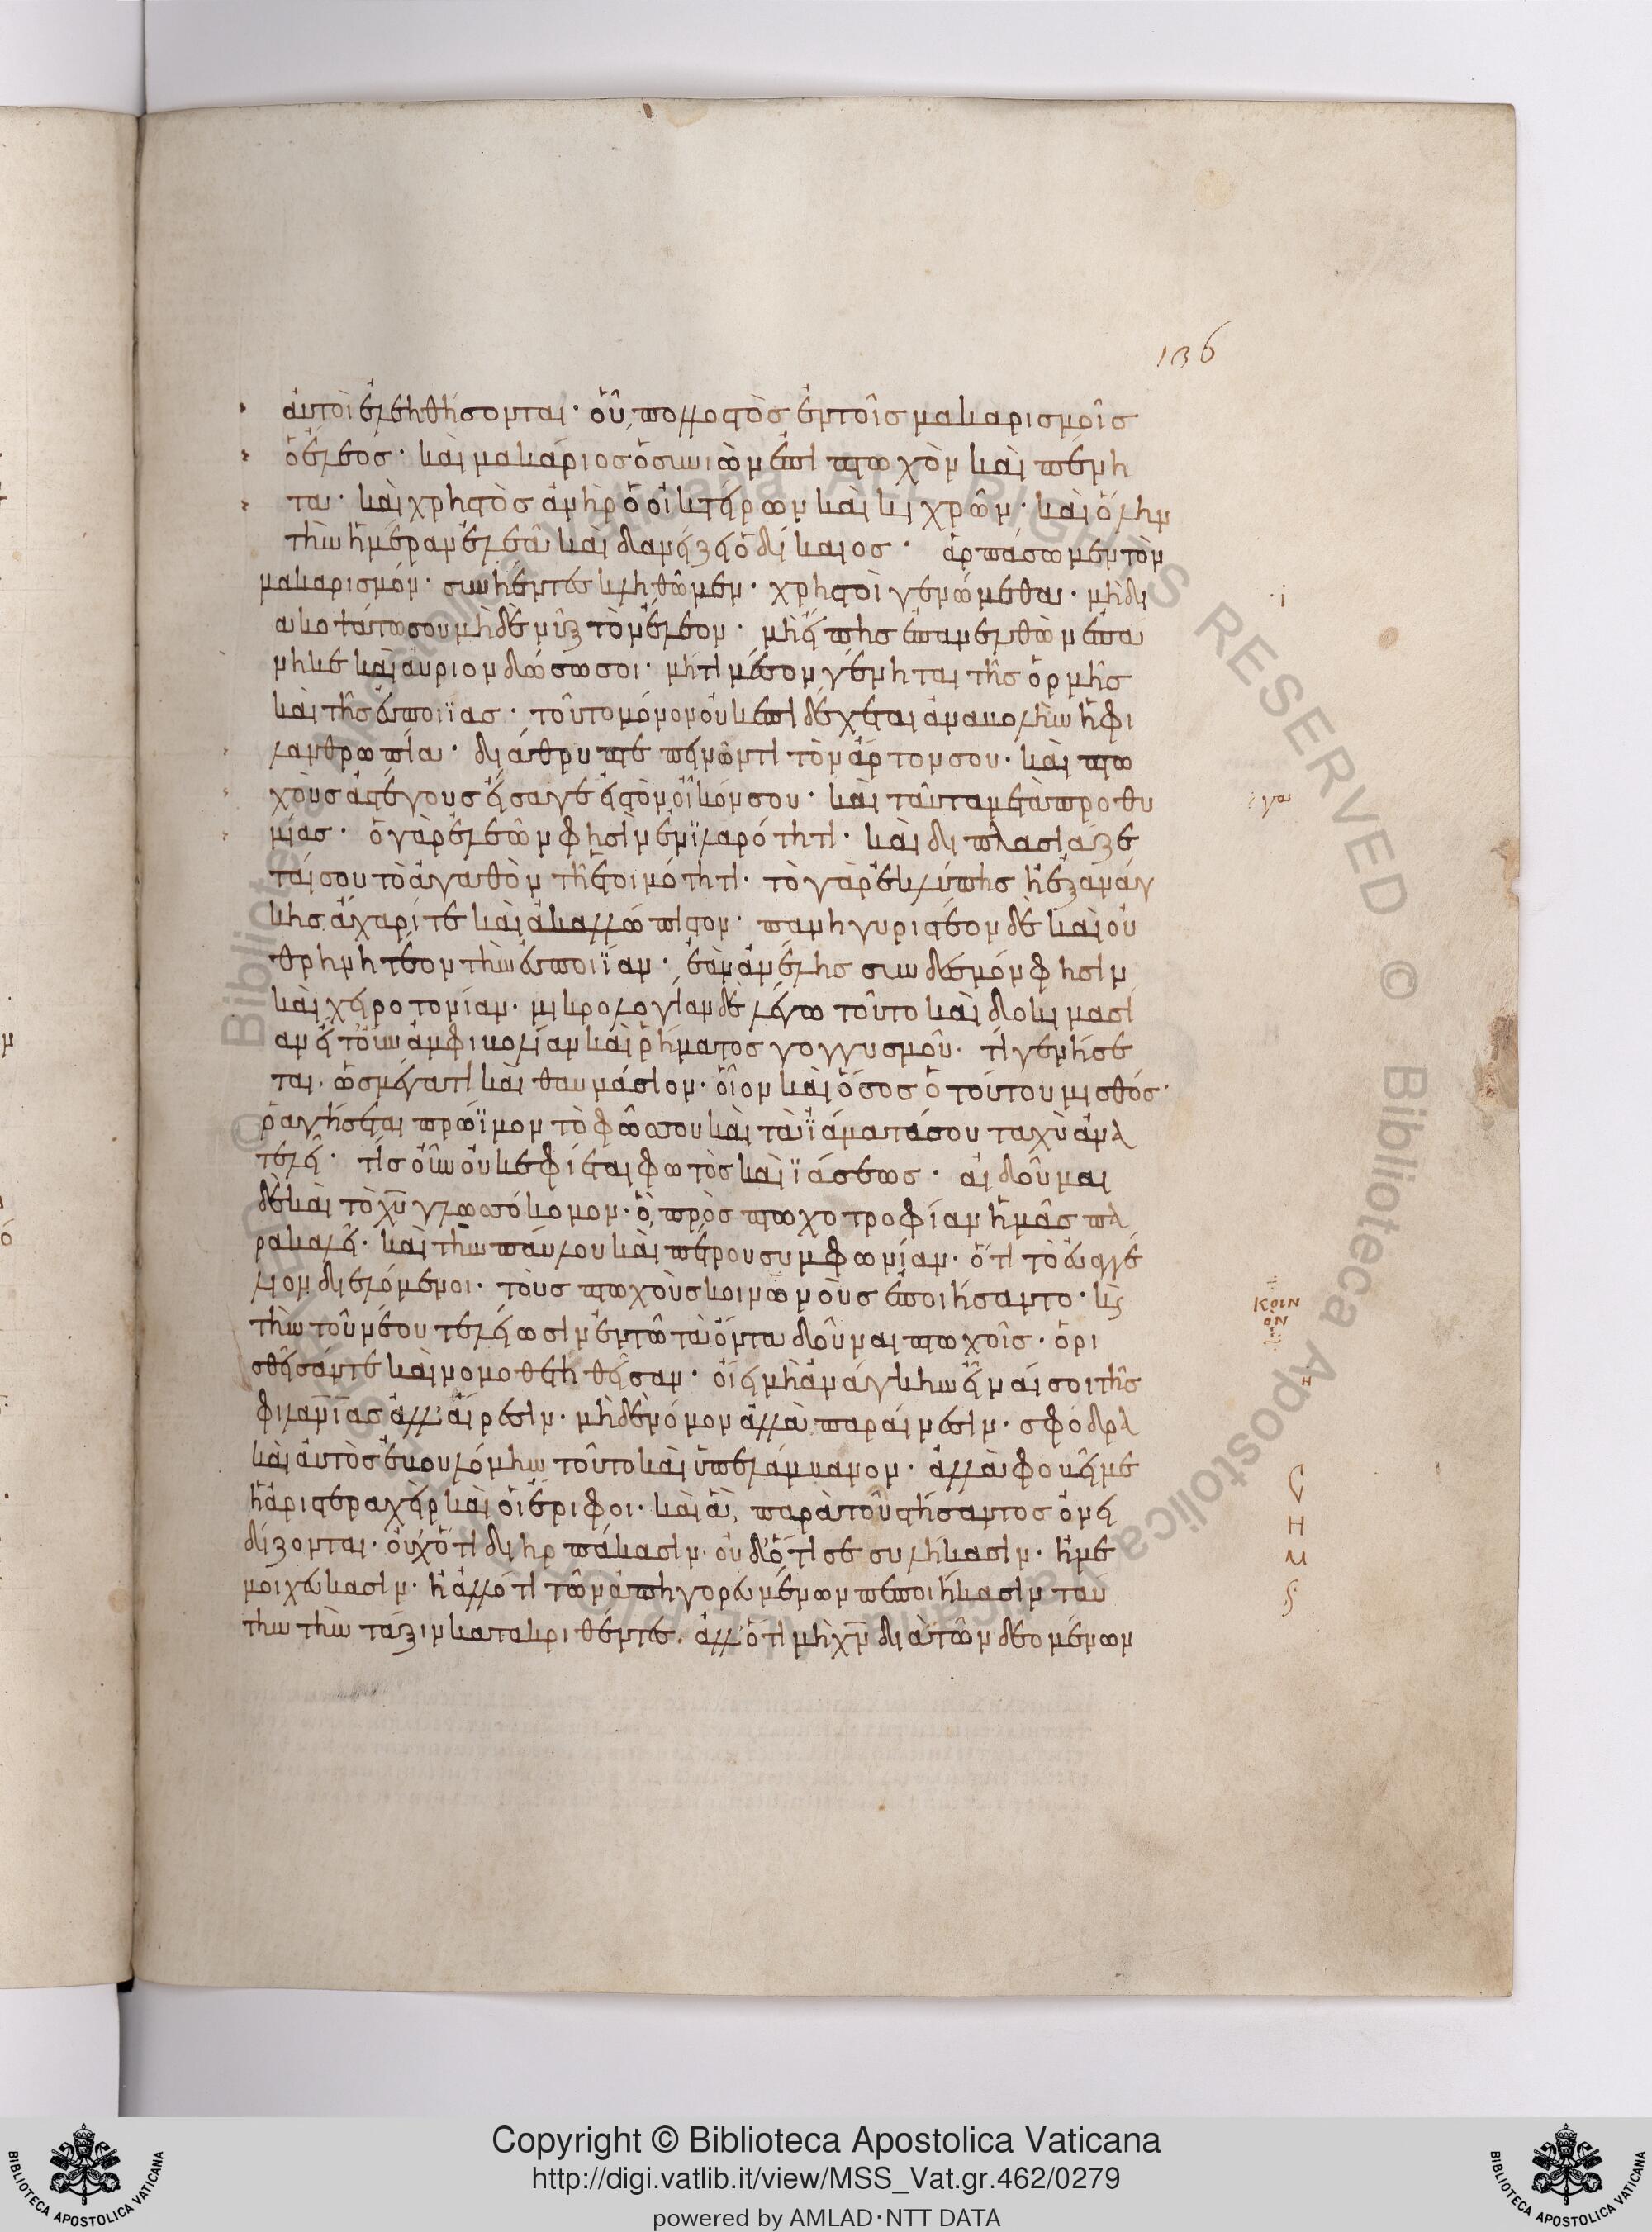 136
αὐτοὶ ἐλεηθήσονται· οὗ, πολλοστὸς ἐν τοῖς μακαρισμοῖς
ὁ ἔλεος· καὶ μακάριος ὁ συνιὼν ἐπὶ πτωχὸν καὶ πένη
τα· καὶ χρηστὸς ἀνὴρ ὁ οἰκτείρων καὶ κιχρῶν· καὶ ὅλην
τὴν ἡμέραν ἐλεᾶ καὶ δανείζει ὁ δίκαιος· ἁρπάσωμεν τὸν
μακαρισμόν· συνιέντες κληθῶμεν· χρηστοὶ γενώμεθα· μὴ δι
ακοπάτω σου μὴ δὲ νὺξ τὸν ἔλεον· μὴ εἴπης ἐπανελθὼν ἐπα
νηκε καὶ αὔριον δώσω σοι· μή τι μέσον γένηται τῆς ὁρμῆς
καὶ τῆς εὐποιΐας· τοῦτο μόνον οὐκ ἐπιδέχεται ἀναβολὴν ἡ φι
λανθρωπία· διάθρυπτε πεινῶντι τὸν ἄρτον σου· καὶ πτω
χοὺς ἀστέγους εἴσαγε εἰς τὸν οἶκόν σου· καὶ ταῦτα μετὰ προθυ
μίας· ὁ γὰρ ἐλεῶν φησὶν ἐν ἱλαρότητι· καὶ διπλασιάζε
ταί σου τὸ ἀγαθὸν τῇ ἑτοιμότητι· τὸ γὰρ ἐκ λύπης ἢ ἐξ ἀνάγ
κης ἄχαρί τε καὶ ἀκαλλώπιστον· πανηγυριστέον δὲ καὶ οὐ
θρηνητέον τὴν εὐποιΐαν· ἐὰν ἀνέλης συνδεσμόν φησιν
καὶ χειροτονίαν· μικρολογίαν δὲ λέγω τοῦτο καὶ δοκιμασί
αν εἴτ' οὖν ἀμφιβολίαν καὶ ῥήματος γογγυσμοῦ· τί γενήσε
ται· ὡς μέγα τι καὶ θαυμάσιον· οἷον καὶ ὅσος ὁ τούτου μισθός·
ῥαγήσεται πρώϊμον τὸ φῶς σου καὶ τὰ ἰάματά σου ταχὺ ἀνα
τελεῖ· τίς οὖν οὐκ ἐφίεται φωτὸς καὶ ἰάσεως· αἰδοῦμαι
δὲ καὶ τὸ χυ γλωσσόκομον· ὃ, πρὸς πτωχοτροφίαν ἡμᾶς πα
ρακαλεῖ· καὶ τὴν παύλου καὶ πέτρου συμφωνίαν· ὅτι τὸ εὐαγγέ
λιον διελόμενοι· τοὺς πτωχοὺς κοινῶν οὓς ἐποιήσαντο· κὶς
τὴν τοῦ νέου τελείωσιν ἐν τῷ τὰ ὄντα δοῦναι πτωχοῖς· ὁρι
σθεῖσάν τε καὶ νομοθετηθεῖσαν· οἴει μὴ ἀνάγκην εἶναί σοι τῆς
φιλανίας ἀλλ' αἵρεσιν· μὴ δὲ νόμον ἀλλὰ παραίνεσιν· σφόδρα
καὶ αὐτὸς ἐβουλόμην τοῦτο καὶ ὑπελάμβανον· ἀλλὰ φοβεῖ με
ἡ ἀριστερὰ χεὶρ καὶ οἱ ἔριφοι· καὶ ἃ, παρὰ τοῦ στήσαντος ὀνει
δίζονται· οὐχ ὅτι διηρπάκασιν· οὐδ' ὅτι σεσυλήκασιν· ἢ με
μοιχεύκασιν· ἢ ἄλλό τι τῶν ἀπηγορευμένων πεποιήκασιν ταύ
την τὴν τάξιν κατακριθέντες· ἀλλ' ὅτι μὴ χν διὰ τῶν δεομένων
ΚΟΙΝ
ὸΝ
Copyright © Biblioteca Apostolica Vaticana
http://digi.vatlib.it/view/MSS_Vat.gr.462/0279
powered by AMLAD·NTT DATA
BIBLIOTECA APOSTOLICA VATICANA
BIBLIOTECA APOSTOLICA VATICANA